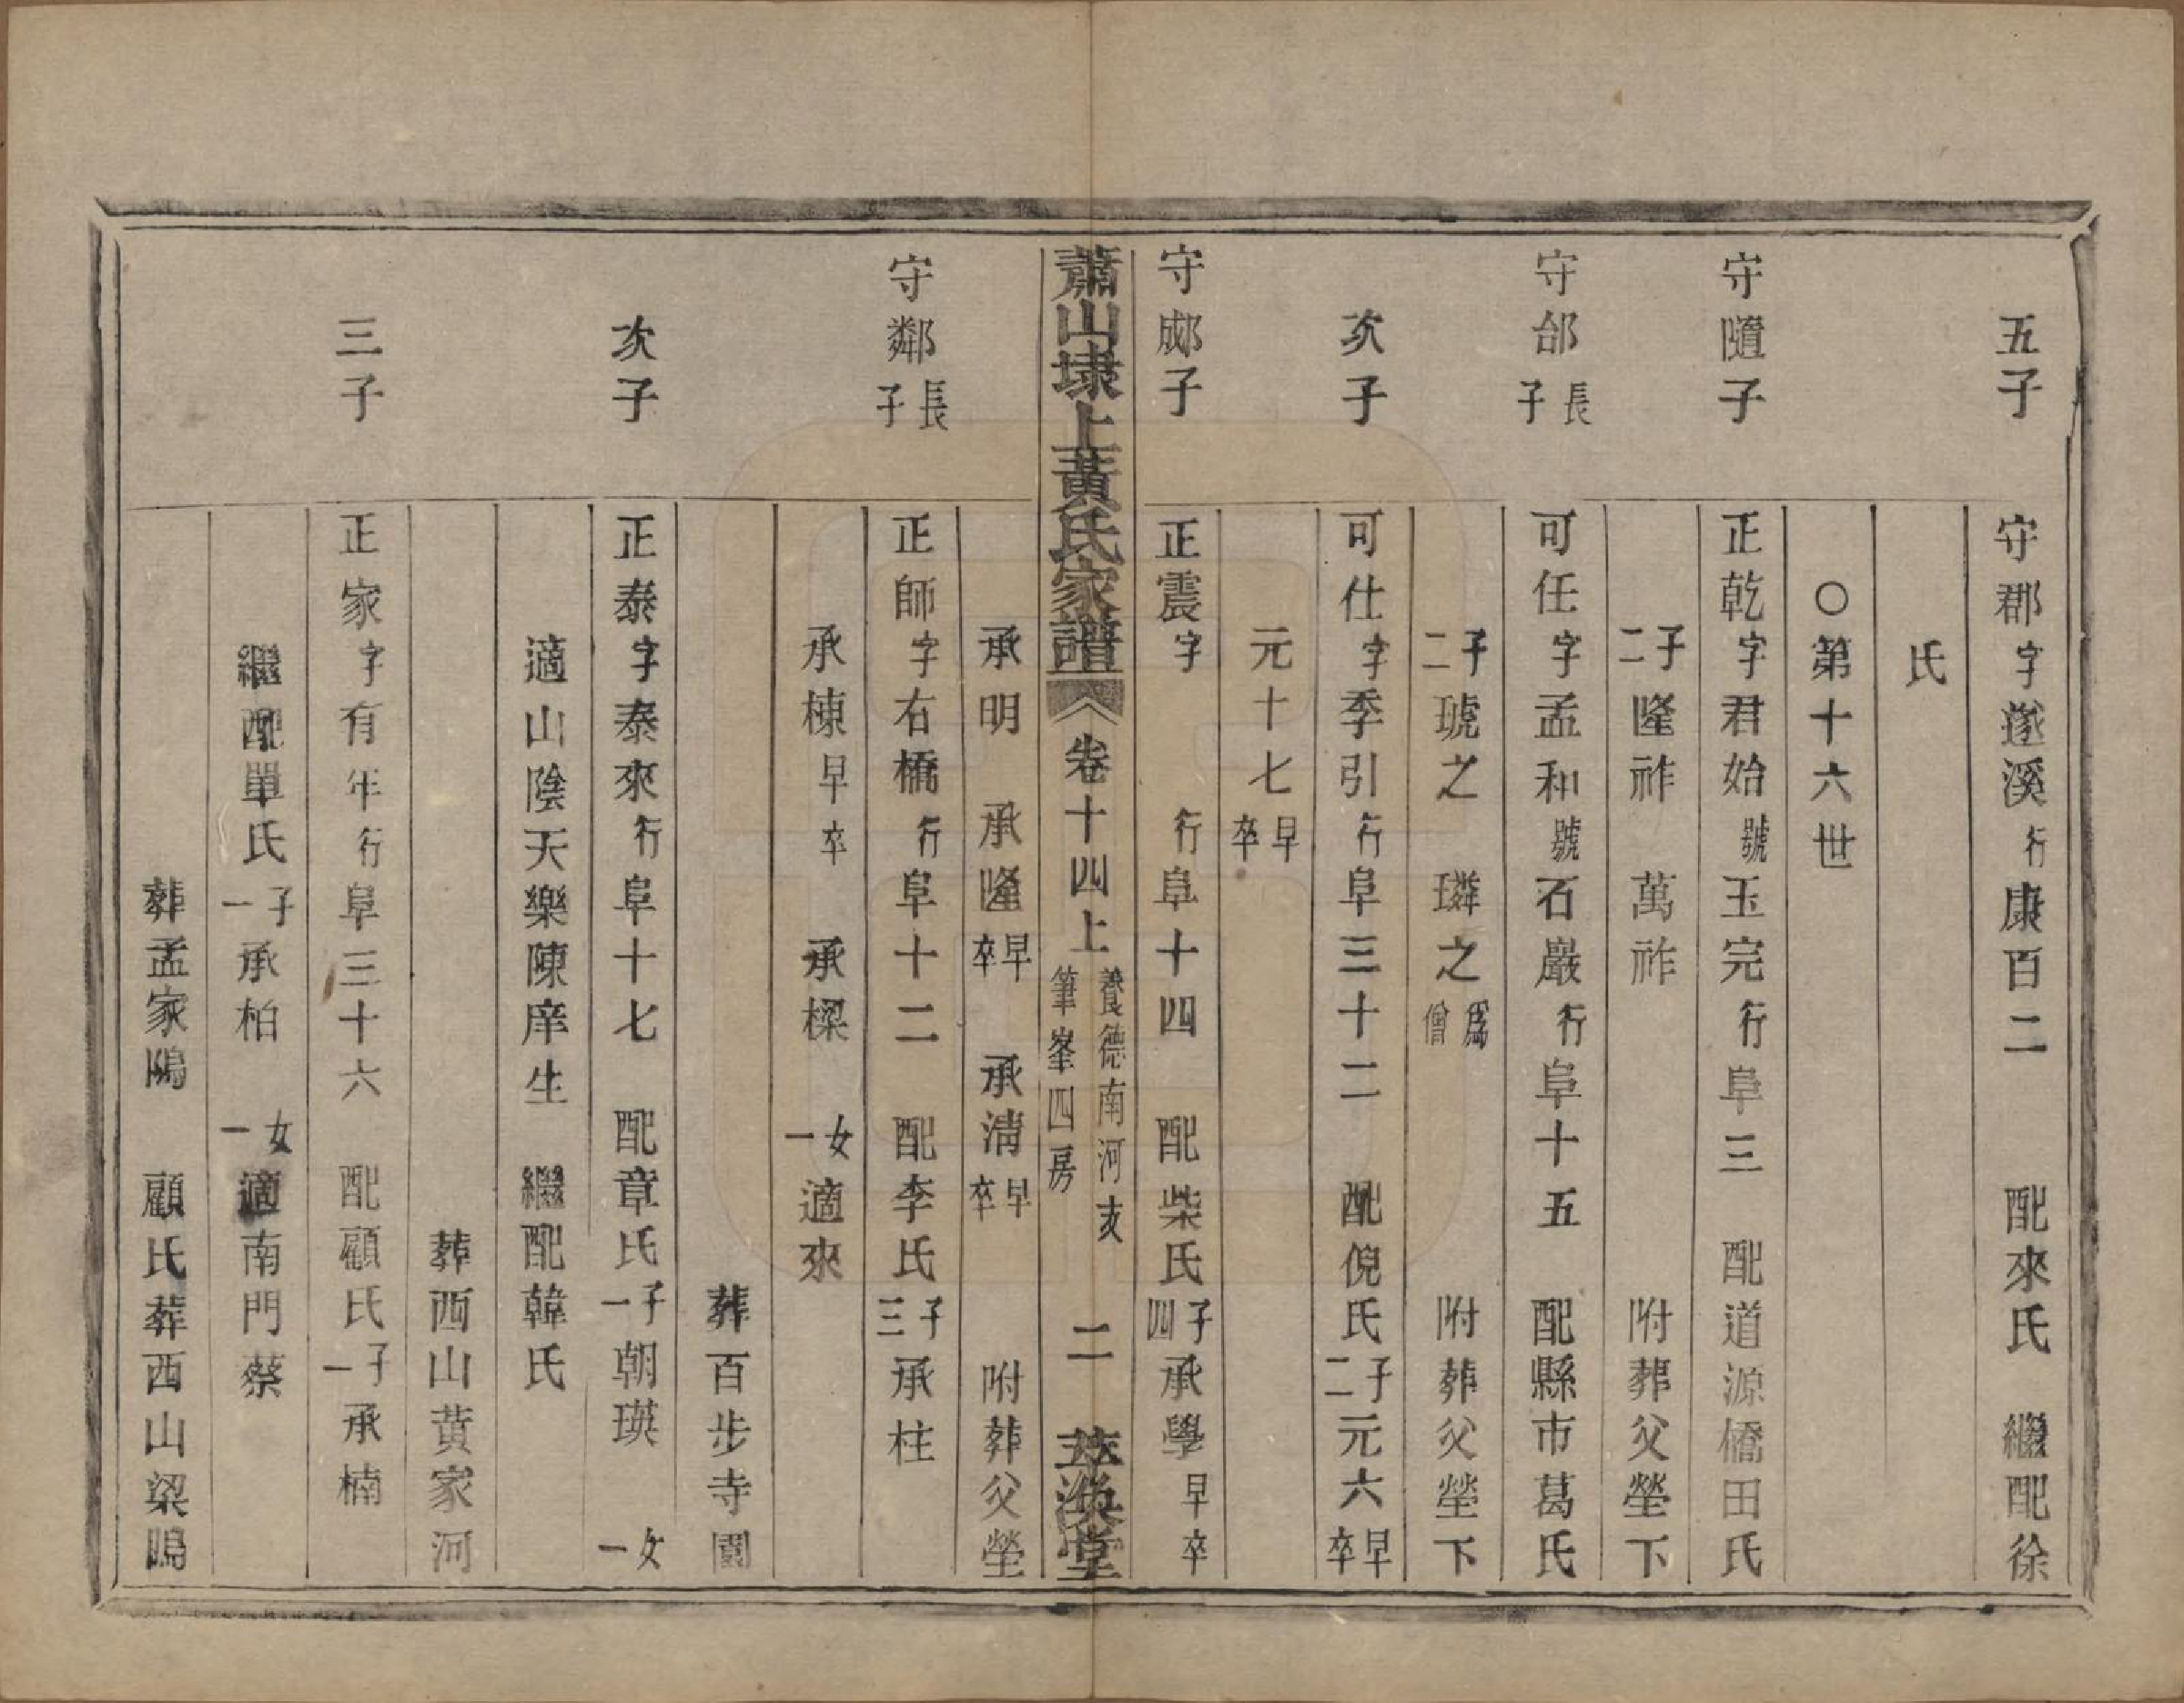 五子
守郡字遂溪行康百二　配來氏　繼配徐
氏
○第十六世
守隨子
正乾字君始號玉完行阜三　配道源橋田氏
子二隆祚　萬祚　附葬父塋下
守郃長子
可任字孟和號石巖行阜十五　配縣市葛氏
子二琥之　璘之爲僧　附葬父塋下
次子
可仕字季引行阜三十二　配倪氏子二元六早卒
元十七早卒
守郕子
正震字　行阜十四　配柴氏子四承學早卒
蕭山埭上黃氏家譜　卷十四上　養德南河支筆峯四房　二　萃渙堂
承明　承隆早卒　承淸早卒　附葬父塋
守鄰長子
正師字右橋行阜十二　配李氏子三承柱
承棟早卒　承樑　女一適來
葬百步寺園
次子
正泰字泰來行阜十七　配章氏子一朝瑛　女一
適山陰天樂陳庠生　繼配韓氏
葬西山黃家河
三子
正家字有年行阜三十六　配顧氏子一承楠
繼配單氏子一承柏　女一適南門蔡
葬孟家隖　顧氏葬西山梁隖